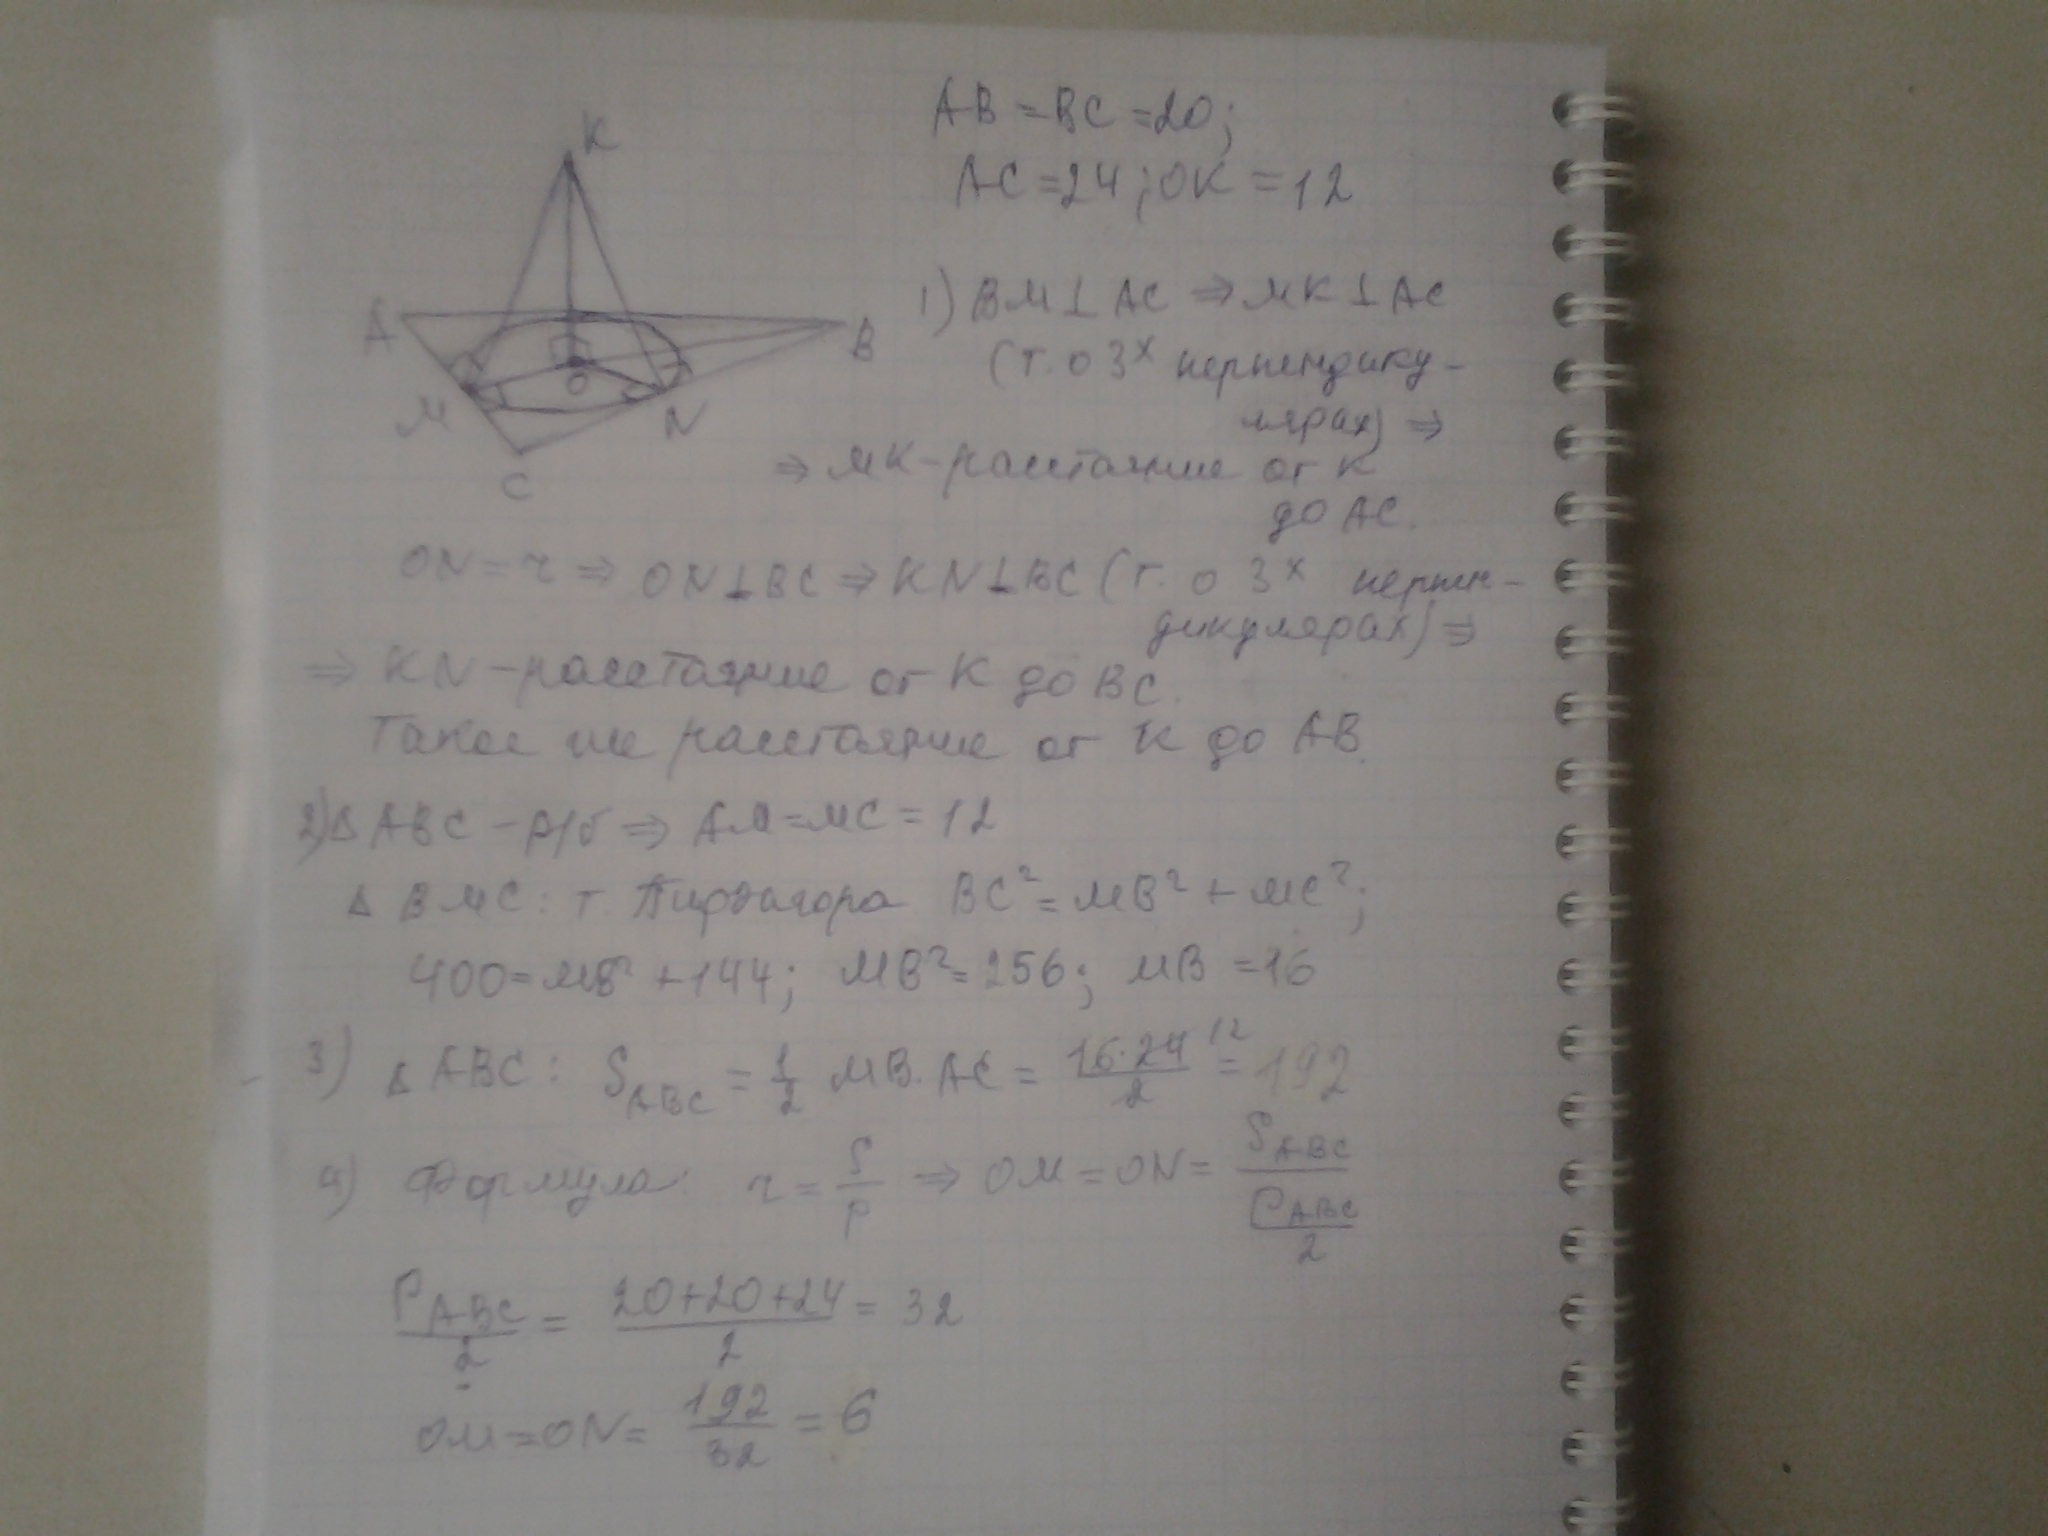 K
A
B
O
M
N
C
AB = BC = 20;
AC = 24; OK = 12
1) BM ⊥ AC ⇒ MK ⊥ AC
(т. о 3х перпендику-
лярах) ⇒
⇒ MK - расстояние от K
до AC.
ON = r ⇒ ON ⊥ BC ⇒ KN ⊥ BC (т. о 3х перпен-
дикулярах) ⇒
⇒ KN - расстояние от K до BC.
Такое же расстояние от K до AB.
2) Δ ABC - р/б ⇒ AM = MC = 12
Δ BMC: т. Пифагора BC² = MB² + MC²;
400 = MB² + 144; MB² = 256; MB = 16
3) Δ ABC: S_ABC = 1/2 MB · AC = 16·24/2 12 = 192
4) Формула: r = S/p ⇒ OM = ON = S_ABC / (P_ABC/2)
P_ABC/2 = (20+20+24)/2 = 32
OM = ON = 192/32 = 6